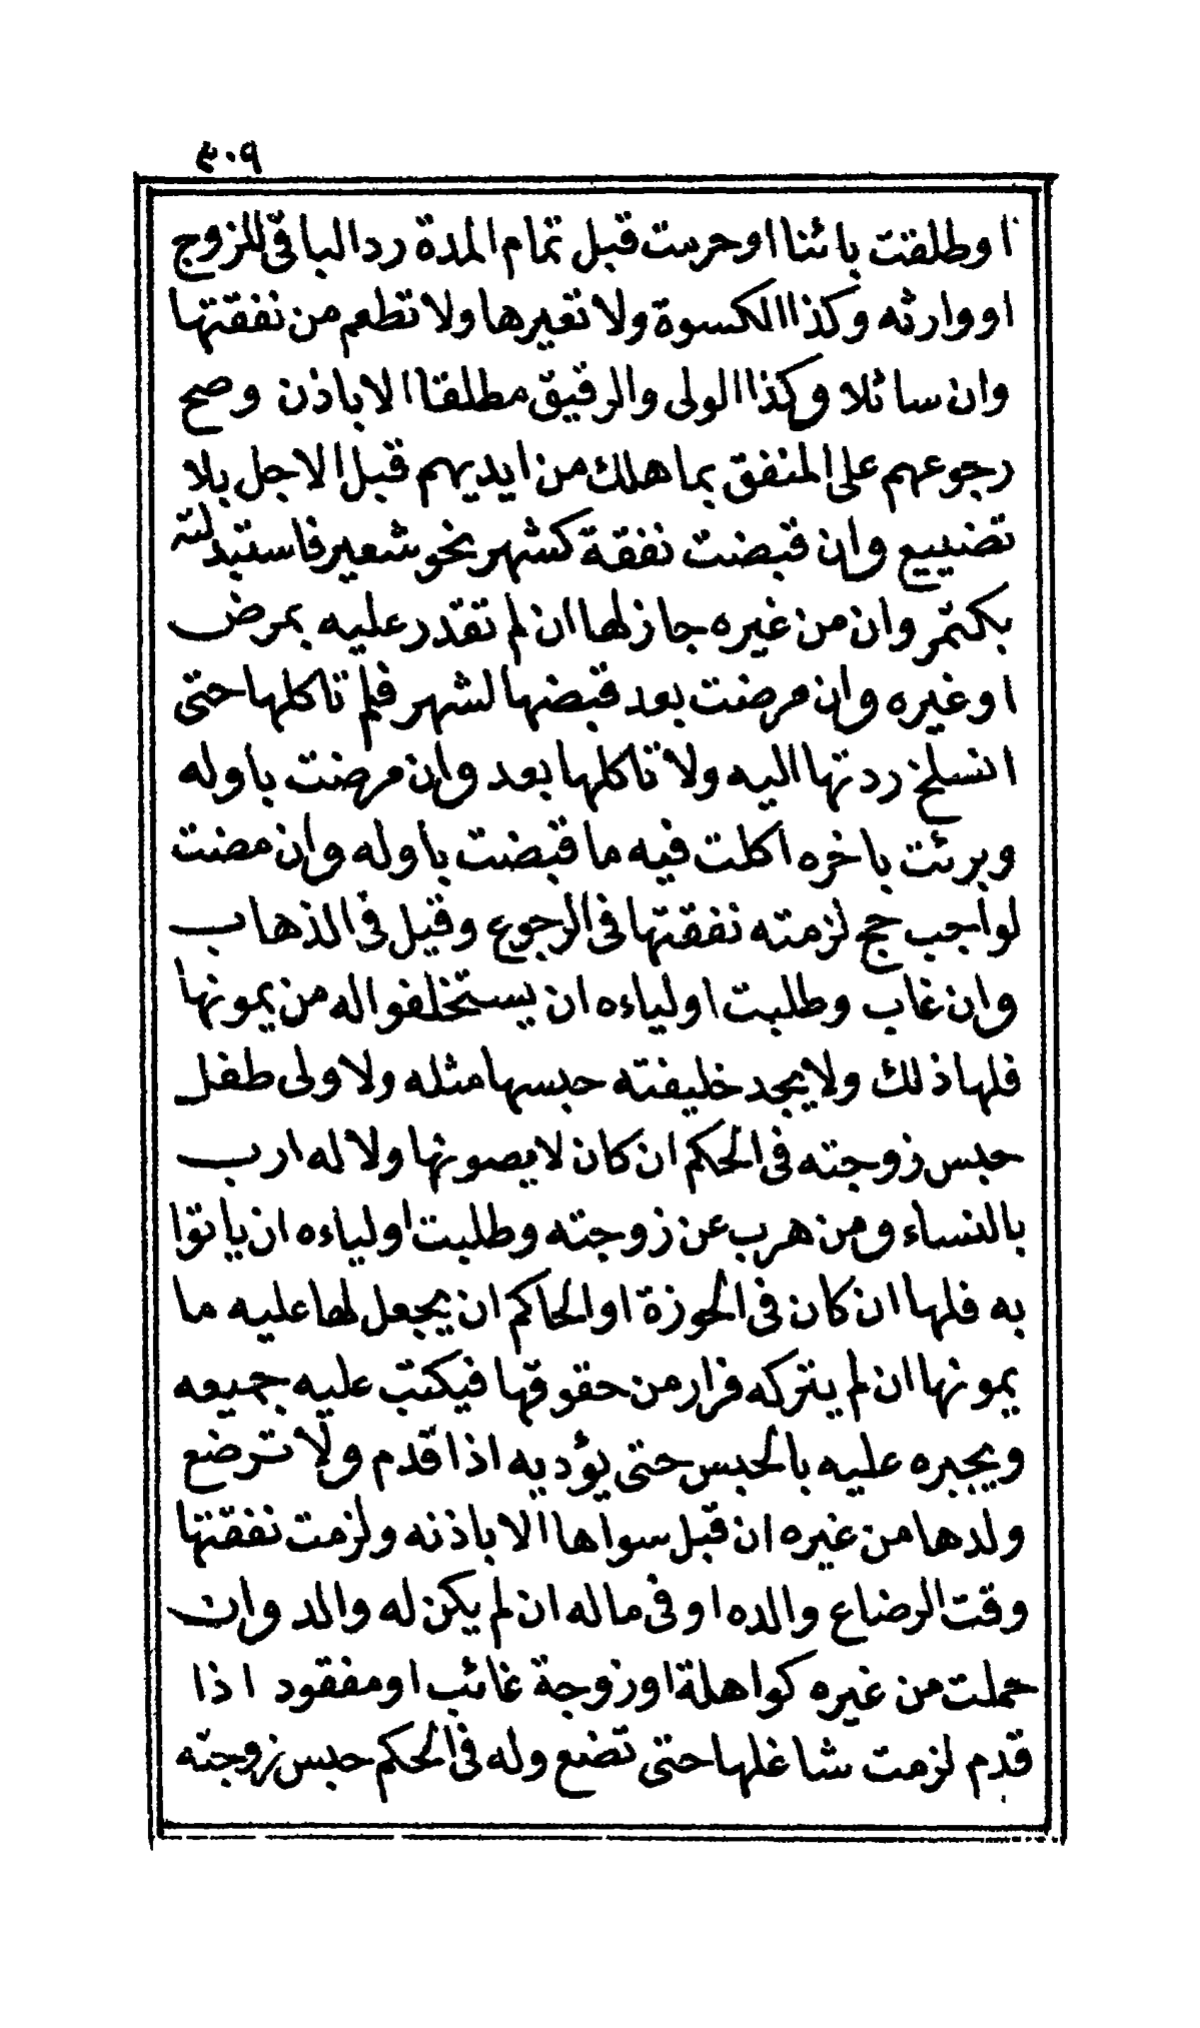 ٤٠٩
اوطلقت بائنا اوحرمت قبل تمام المدة رد الباقى للزوج
او وارثه وكذا الكسوة ولا تعيرها ولا تطعم من نفقتها
وان سائلا وكذا الولى والرقيق مطلقا الا باذن وصح
رجوعهم على المنفق بما هلك من ايديهم قبل الاجل بلا
تضييع وان قبضت نفقة كشهر بنحو شعير فاستبدلته
بكتمر وان من غيره جاز لها ان لم تقدر عليه بمرض
اوغيره وان مرضت بعد قبضها لشهر فلم تاكلها حتى
انسلخ ردتها اليه ولا تاكلها بعد وان مرضت باوله
وبرئت باخره اكلت فيه ما قبضت باوله وان مضت
لواجب حج لزمته نفقتها فى الرجوع وقيل فى الذهاب
وان غاب وطلبت اولياءه ان يستخلفوا له من يمونها
فلها ذلك ولا يجد خليفته حبسها مثله ولا ولى طفل
حبس زوجته فى الحكم ان كان لا يصونها ولا له ارب
بالنساء ومن هرب عن زوجته وطلبت اولياءه ان ياتوا
به فلها ان كان فى الحوزة او الحاكم ان يجعل لها عليه ما
يمونها ان لم يتركه فرار من حقوقها فيكتب عليه جميعه
ويجبره عليه بالحبس حتى يؤديه اذا قدم ولا ترضع
ولدها من غيره ان قبل سواها الا باذنه ولزمت نفقتها
وقت الرضاع والده اوفى ماله ان لم يكن له والد وان
حملت من غيره كواهلة اوزوجة غائب اومفقود اذا
قدم لزمت شاغلها حتى تضع وله فى الحكم حبس زوجته